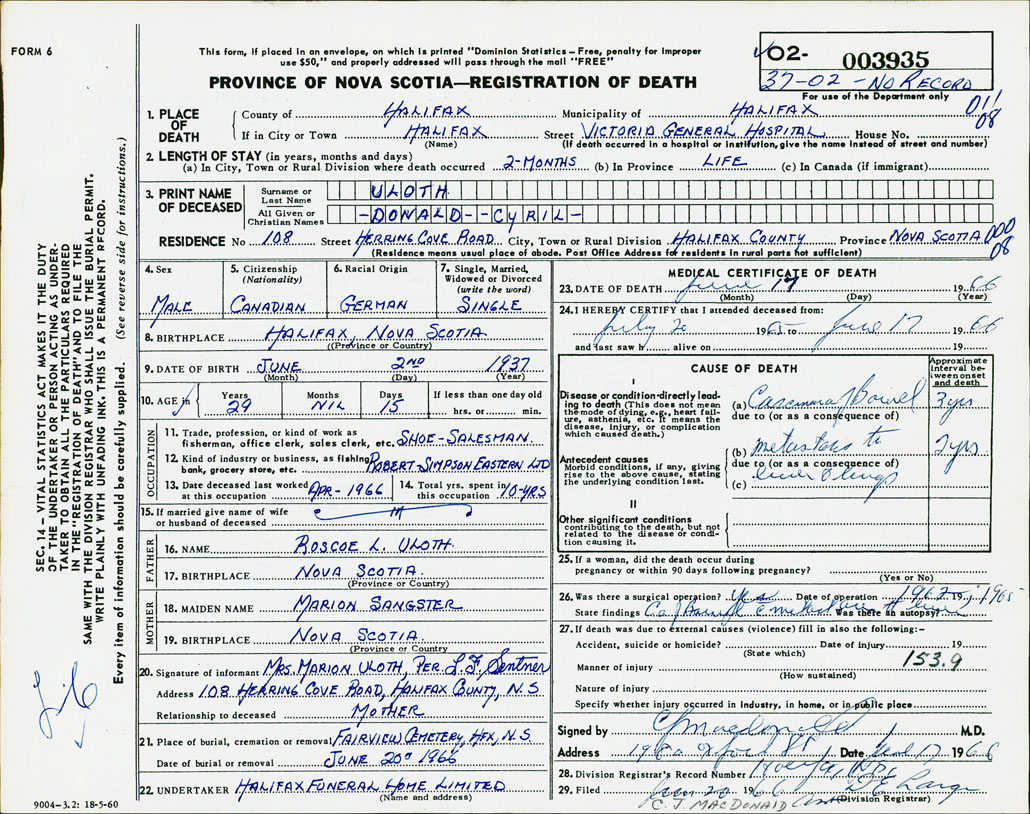 FORM 6
This form, if placed in an envelope, on which is printed "Dominion Statistics – Free, penalty for improper
use $50," and properly addressed will pass through the mail "FREE"
PROVINCE OF NOVA SCOTIA—REGISTRATION OF DEATH
02- 003935
37-02 - NO RECORD
For use of the Department only
011
08
SEC. 14 – VITAL STATISTICS ACT MAKES IT THE DUTY
OF THE UNDERTAKER OR PERSON ACTING AS UNDER-
TAKER TO OBTAIN ALL THE PARTICULARS REQUIRED
IN THE "REGISTRATION OF DEATH" AND TO FILE THE
SAME WITH THE DIVISION REGISTRAR WHO SHALL ISSUE THE BURIAL PERMIT.
WRITE PLAINLY WITH UNFADING INK. THIS IS A PERMANENT RECORD.
Every item of information should be carefully supplied. (See reverse side for instructions.)
1. PLACE OF DEATH
County of HALIFAX Municipality of HALIFAX
If in City or Town HALIFAX Street VICTORIA GENERAL HOSPITAL House No.
(Name) (If death occurred in a hospital or institution, give the name instead of street and number)
2. LENGTH OF STAY (in years, months and days)
(a) In City, Town or Rural Division where death occurred 2-MONTHS (b) In Province LIFE (c) In Canada (if immigrant)
3. PRINT NAME OF DECEASED
Surname or Last Name ULOTH
All Given or Christian Names -DONALD--CYRIL-
RESIDENCE No 108 Street HERRING COVE ROAD City, Town or Rural Division HALIFAX COUNTY Province NOVA SCOTIA 000
08
(Residence means usual place of abode. Post Office Address for residents in rural parts not sufficient)
4. Sex
MALE
5. Citizenship
(Nationality)
CANADIAN
6. Racial Origin
GERMAN
7. Single, Married,
Widowed or Divorced
(write the word)
SINGLE
8. BIRTHPLACE HALIFAX, NOVA SCOTIA
((Province or Country)
9. DATE OF BIRTH JUNE 2ND 1937
(Month) (Day) (Year)
10. AGE in Years 29 Months NIL Days 15 If less than one day old hrs. or min.
OCCUPATION
11. Trade, profession, or kind of work as
fisherman, office clerk, sales clerk, etc. SHOE-SALESMAN.
12. Kind of industry or business, as fishing
bank, grocery store, etc. ROBERT-SIMPSON EASTERN LTD
13. Date deceased last worked
at this occupation APR-1966
14. Total yrs. spent in
this occupation 10-YRS
15. If married give name of wife
or husband of deceased
FATHER
16. NAME ROSCOE L. ULOTH.
17. BIRTHPLACE NOVA SCOTIA.
(Province or Country)
MOTHER
18. MAIDEN NAME MARION SANGSTER
19. BIRTHPLACE NOVA SCOTIA.
(Province or Country
20. Signature of informant MRS. MARION ULOTH, PER. L.F. Sentner
Address 108 HERRING COVE ROAD, HALIFAX COUNTY, N.S
Relationship to deceased MOTHER
21. Place of burial, cremation or removal FAIRVIEW CEMETERY, HFX, N.S.
Date of burial or removal JUNE 20th 1966
22. UNDERTAKER HALIFAX FUNERAL HOME LIMITED
(Name and address)
9004-3.2: 18-5-60
MEDICAL CERTIFICATE OF DEATH
23. DATE OF DEATH June 17 1966
(Month) (Day) (Year)
24. I HEREBY CERTIFY that I attended deceased from:
July 20 1965 to June 17 1966
and last saw h alive on 19
CAUSE OF DEATH
Approximate
interval be-
tween onset
and death
I
Disease or condition directly lead-
ing to death (This does not mean
the mode of dying, e.g., heart fail-
ure, asthenia, etc. It means the
disease, injury, or complication
which caused death.)
(a) Carcinoma of Bowel 3 yrs
due to (or as a consequence of)
(b) metastasis to 2 yrs.
Antecedent causes
Morbid conditions, if any, giving
rise to the above cause, stating
the underlying condition last.
due to (or as a consequence of)
(c) liver & lungs
II
Other significant conditions
contributing to the death, but not
related to the disease or condi-
tion causing it.
25. If a woman, did the death occur during
pregnancy or within 90 days following pregnancy?
(Yes or No)
26. Was there a surgical operation? yes Date of operation 1962 19 1965
State findings Ca Was there an autopsy?
27. If death was due to external causes (violence) fill in also the following:–
Accident, suicide or homicide? Date of injury 19
(State which)
153.9
Manner of injury
(How sustained)
Nature of injury
Specify whether injury occurred in industry, in home, or in public place
Signed by CJ Macdonald M.D.
Address Date 17 1966
28. Division Registrar's Record Number
29. Filed June 20 1966
(Division Registrar)
C. J. MACDONALD